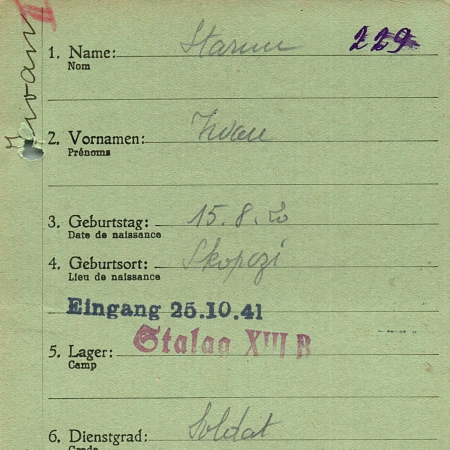 Iwan II
1. Name: 229
Nom
2. Vornamen: Iwan
Prénoms
3. Geburtstag: 15.8.20
Date de naissance
4. Geburtsort: Skopczi
Lieu de naissance
Eingang 25.10.41
Stalag XIII B
5. Lager:
Camp
6. Dienstgrad: Soldat
Grade